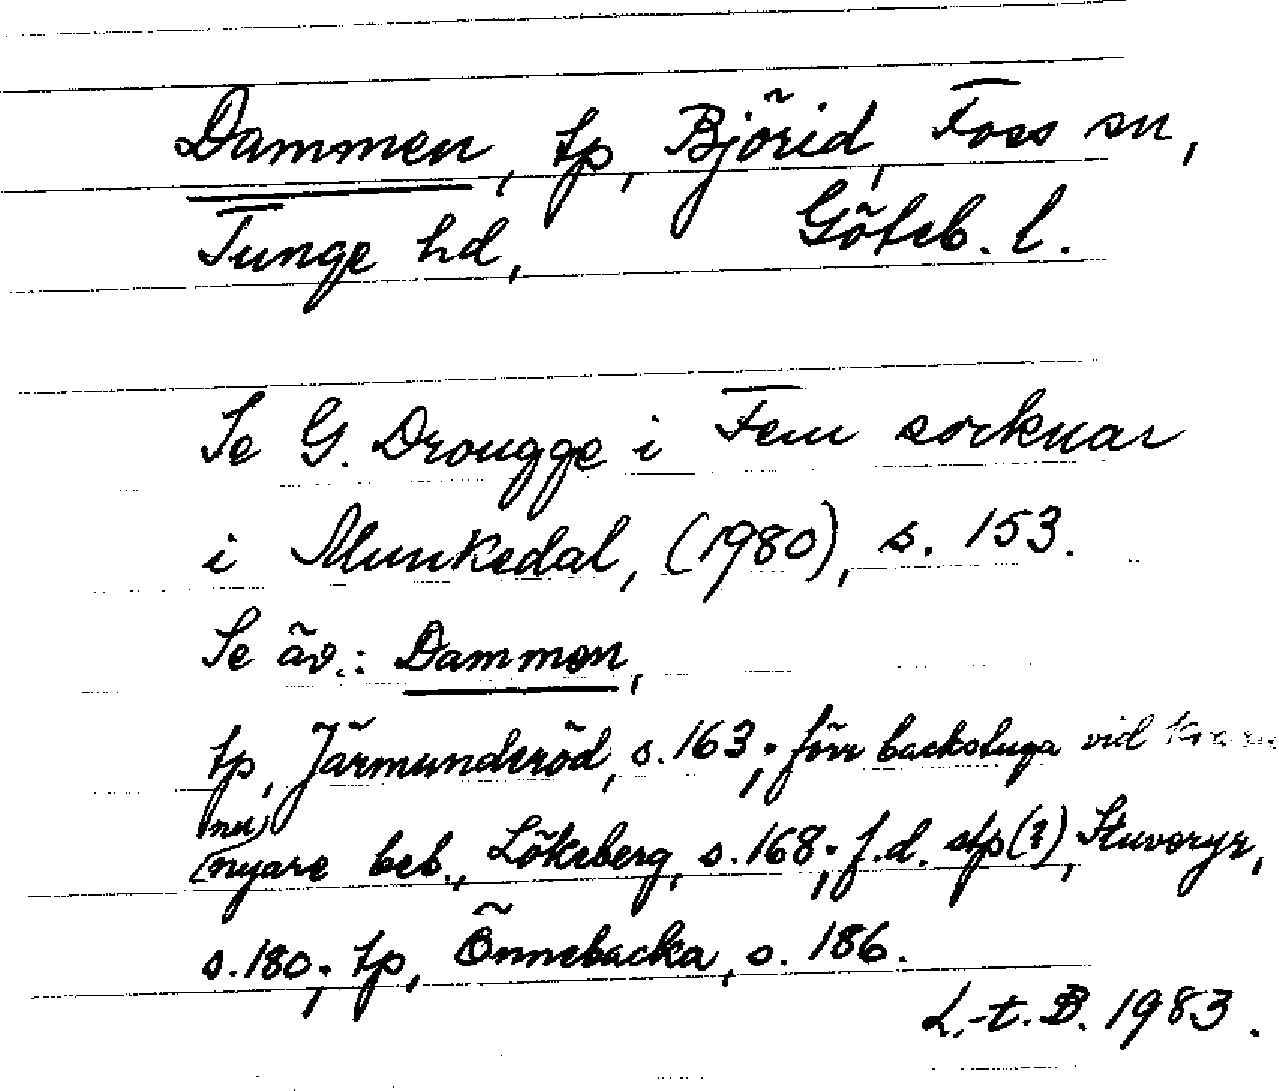 Dammen, tp, Björid, Foss sn,
Tunge hd, Göteb. l.
Se G. Drougge i Fem socknar
i Munkedal, (1980), s. 153.
Se äv.: Dammen,
tp, Järmunderöd, s. 163; förr backstuga vid
(nu)
nyare beb., Lökeberg, s. 168; f.d. stp(?), Stuveryr,
s. 180; tp, Önnebacka, s. 186.
L.-t. B. 1983.